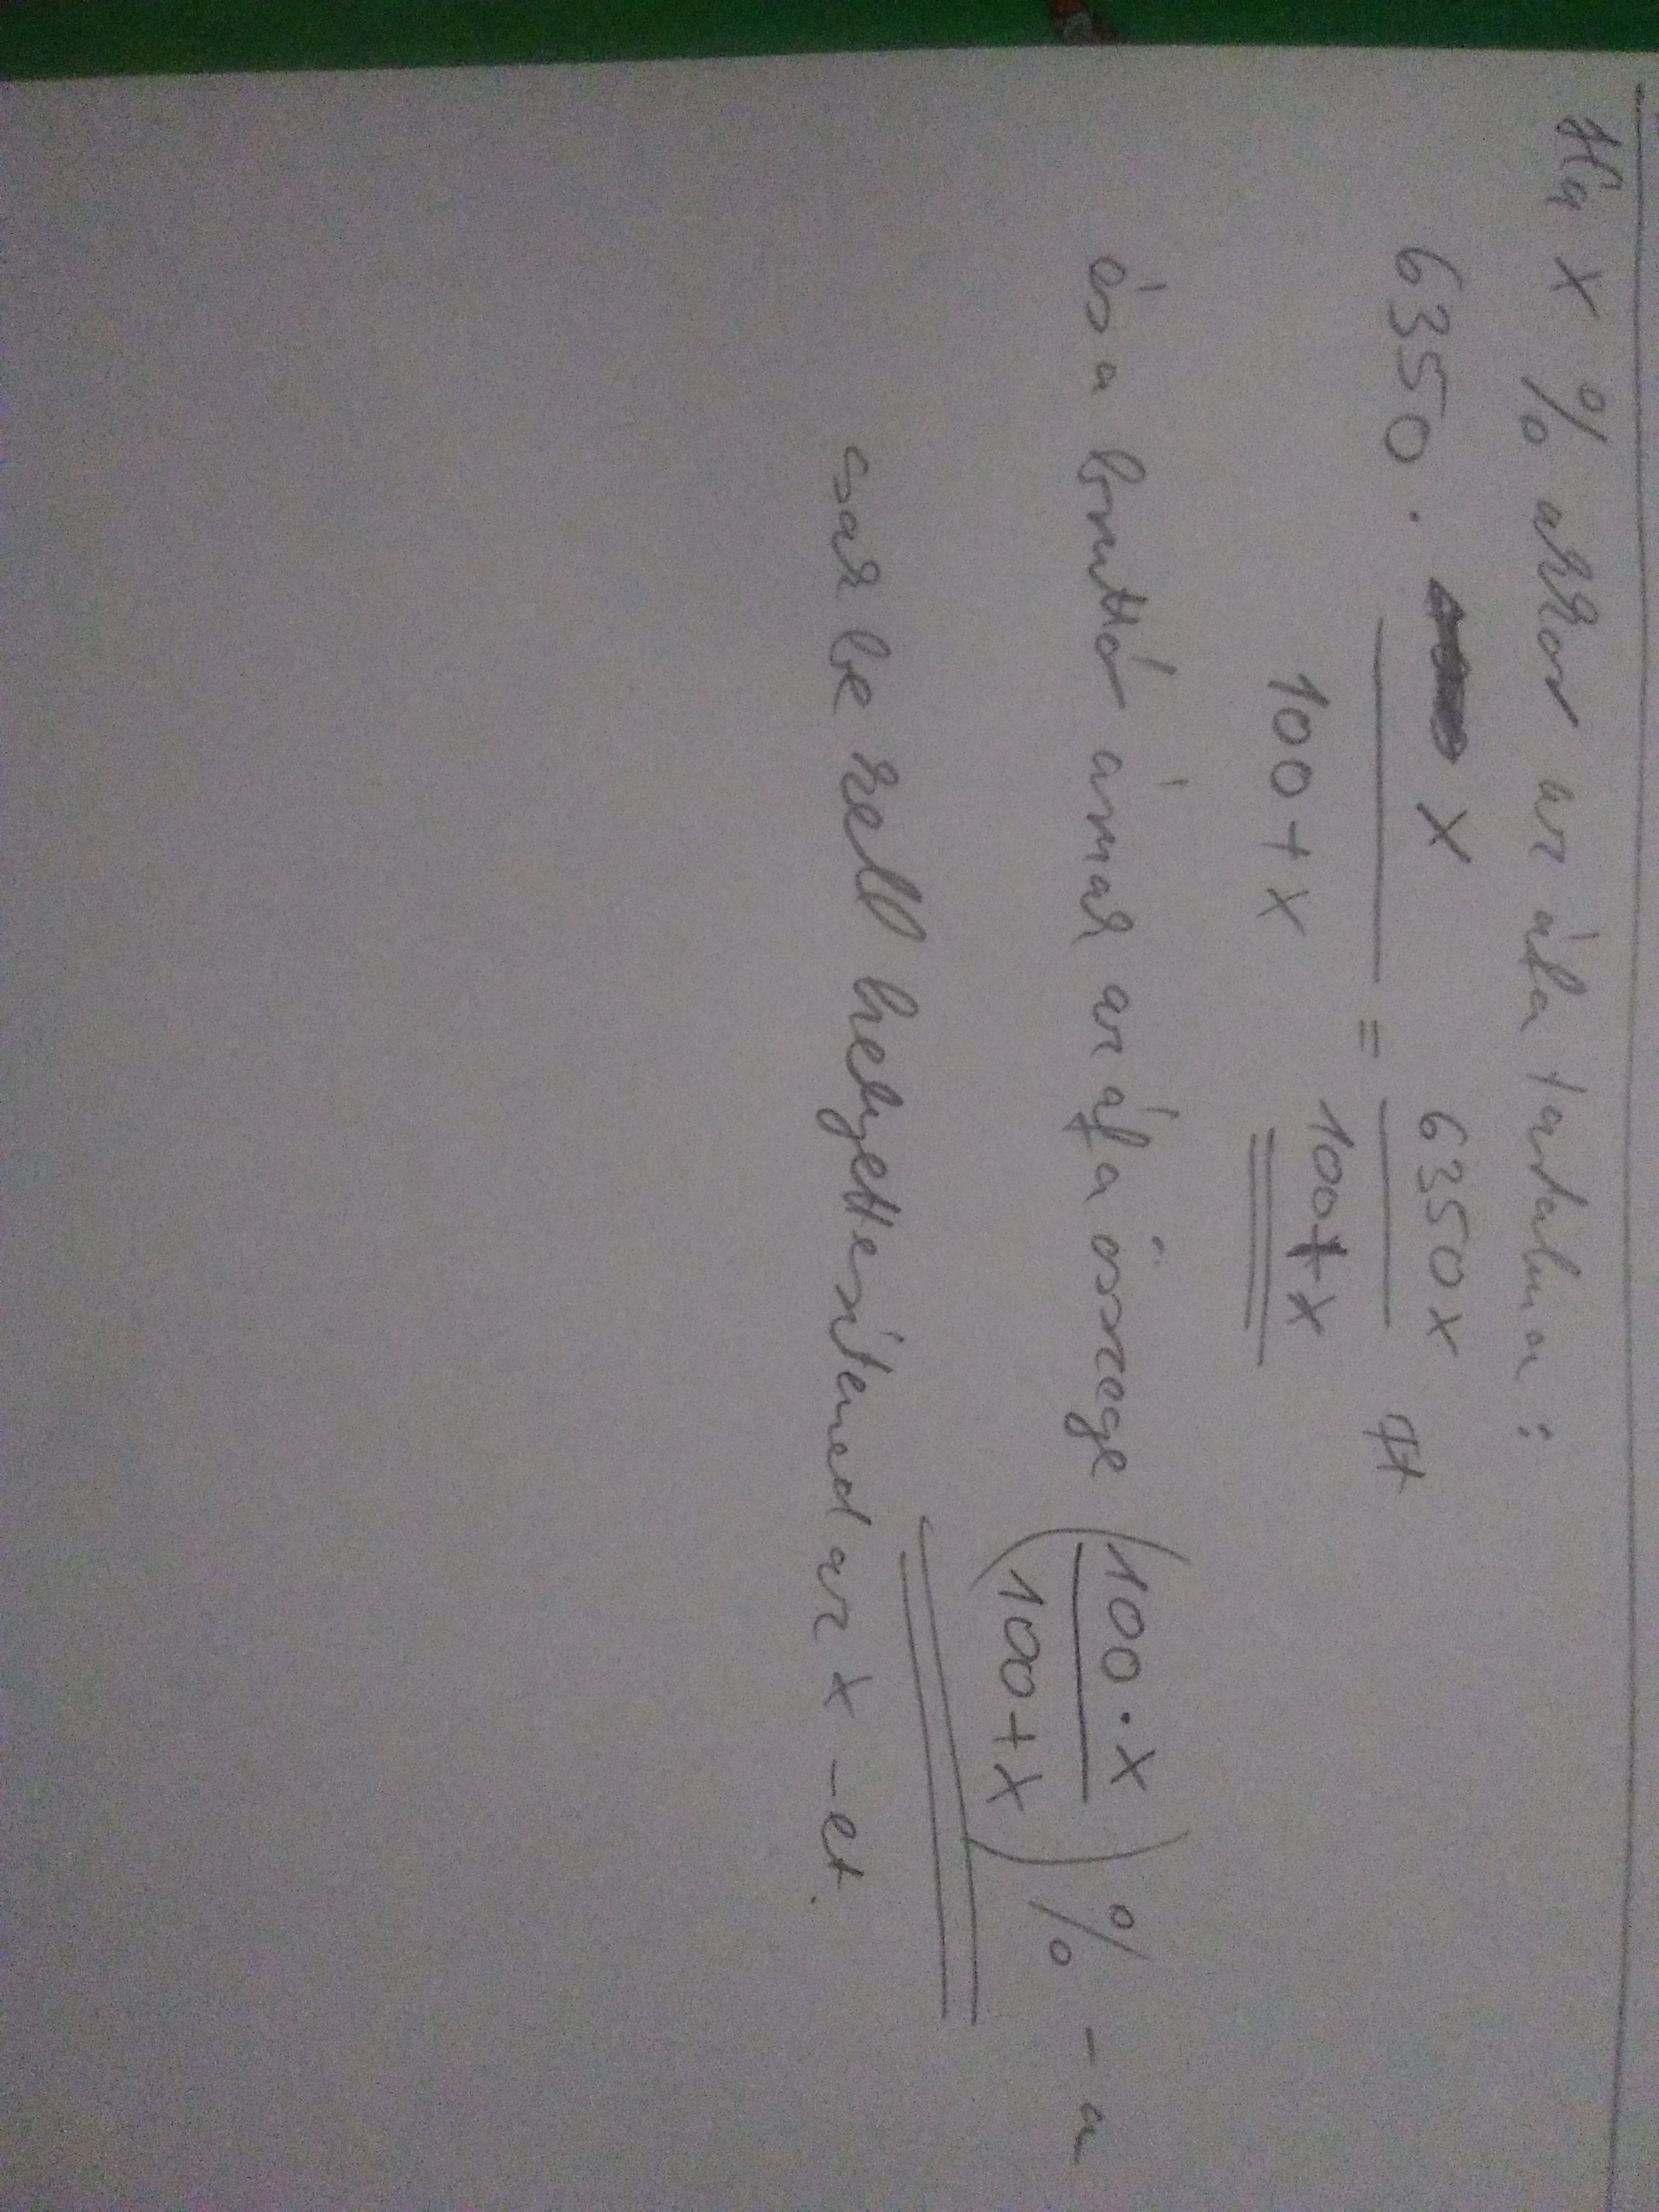 Ha x % akkor az áfa tartalma:
6350 · x / 100 + x = 6350 x / 100 + x Ft
és a bruttó árnak az áfa összege (100 · x / 100 + x) % - a
csak be kell helyettesítened az x - et.